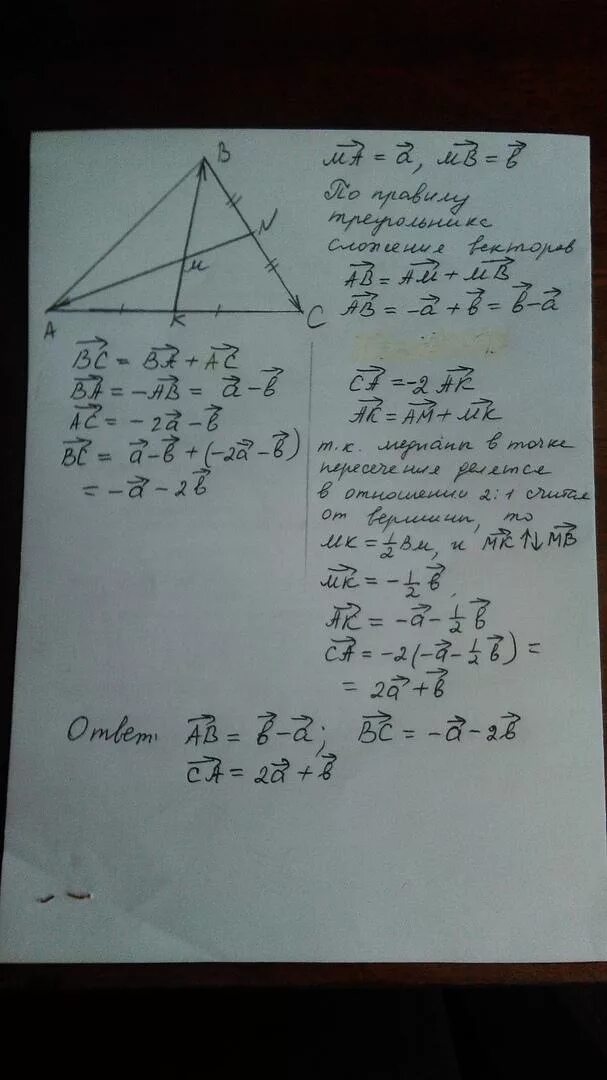 B
N
M
A
K
C
M⃗A⃗ = a⃗, M⃗B⃗ = b⃗
По правилу
треугольника
сложения векторов
A⃗B⃗ = A⃗M⃗ + M⃗B⃗
A⃗B⃗ = -a⃗ + b⃗ = b⃗ - a⃗
B⃗C⃗ = B⃗A⃗ + A⃗C⃗
B⃗A⃗ = -A⃗B⃗ = a⃗ - b⃗
A⃗C⃗ = -2a⃗ - b⃗
B⃗C⃗ = a⃗ - b⃗ + (-2a⃗ - b⃗)
= -a⃗ - 2b⃗
C⃗A⃗ = -2 A⃗K⃗
A⃗K⃗ = A⃗M⃗ + M⃗K⃗
т.к. медианы в точке
пересечения делятся
в отношении 2:1 считая
от вершины, то
MK = 1/2 BM, и M⃗K⃗ ↑↓ M⃗B⃗
M⃗K⃗ = -1/2 b⃗,
A⃗K⃗ = -a⃗ - 1/2 b⃗
C⃗A⃗ = -2(-a⃗ - 1/2 b⃗) =
= 2a⃗ + b⃗
Ответ: A⃗B⃗ = b⃗ - a⃗; B⃗C⃗ = -a⃗ - 2b⃗
C⃗A⃗ = 2a⃗ + b⃗